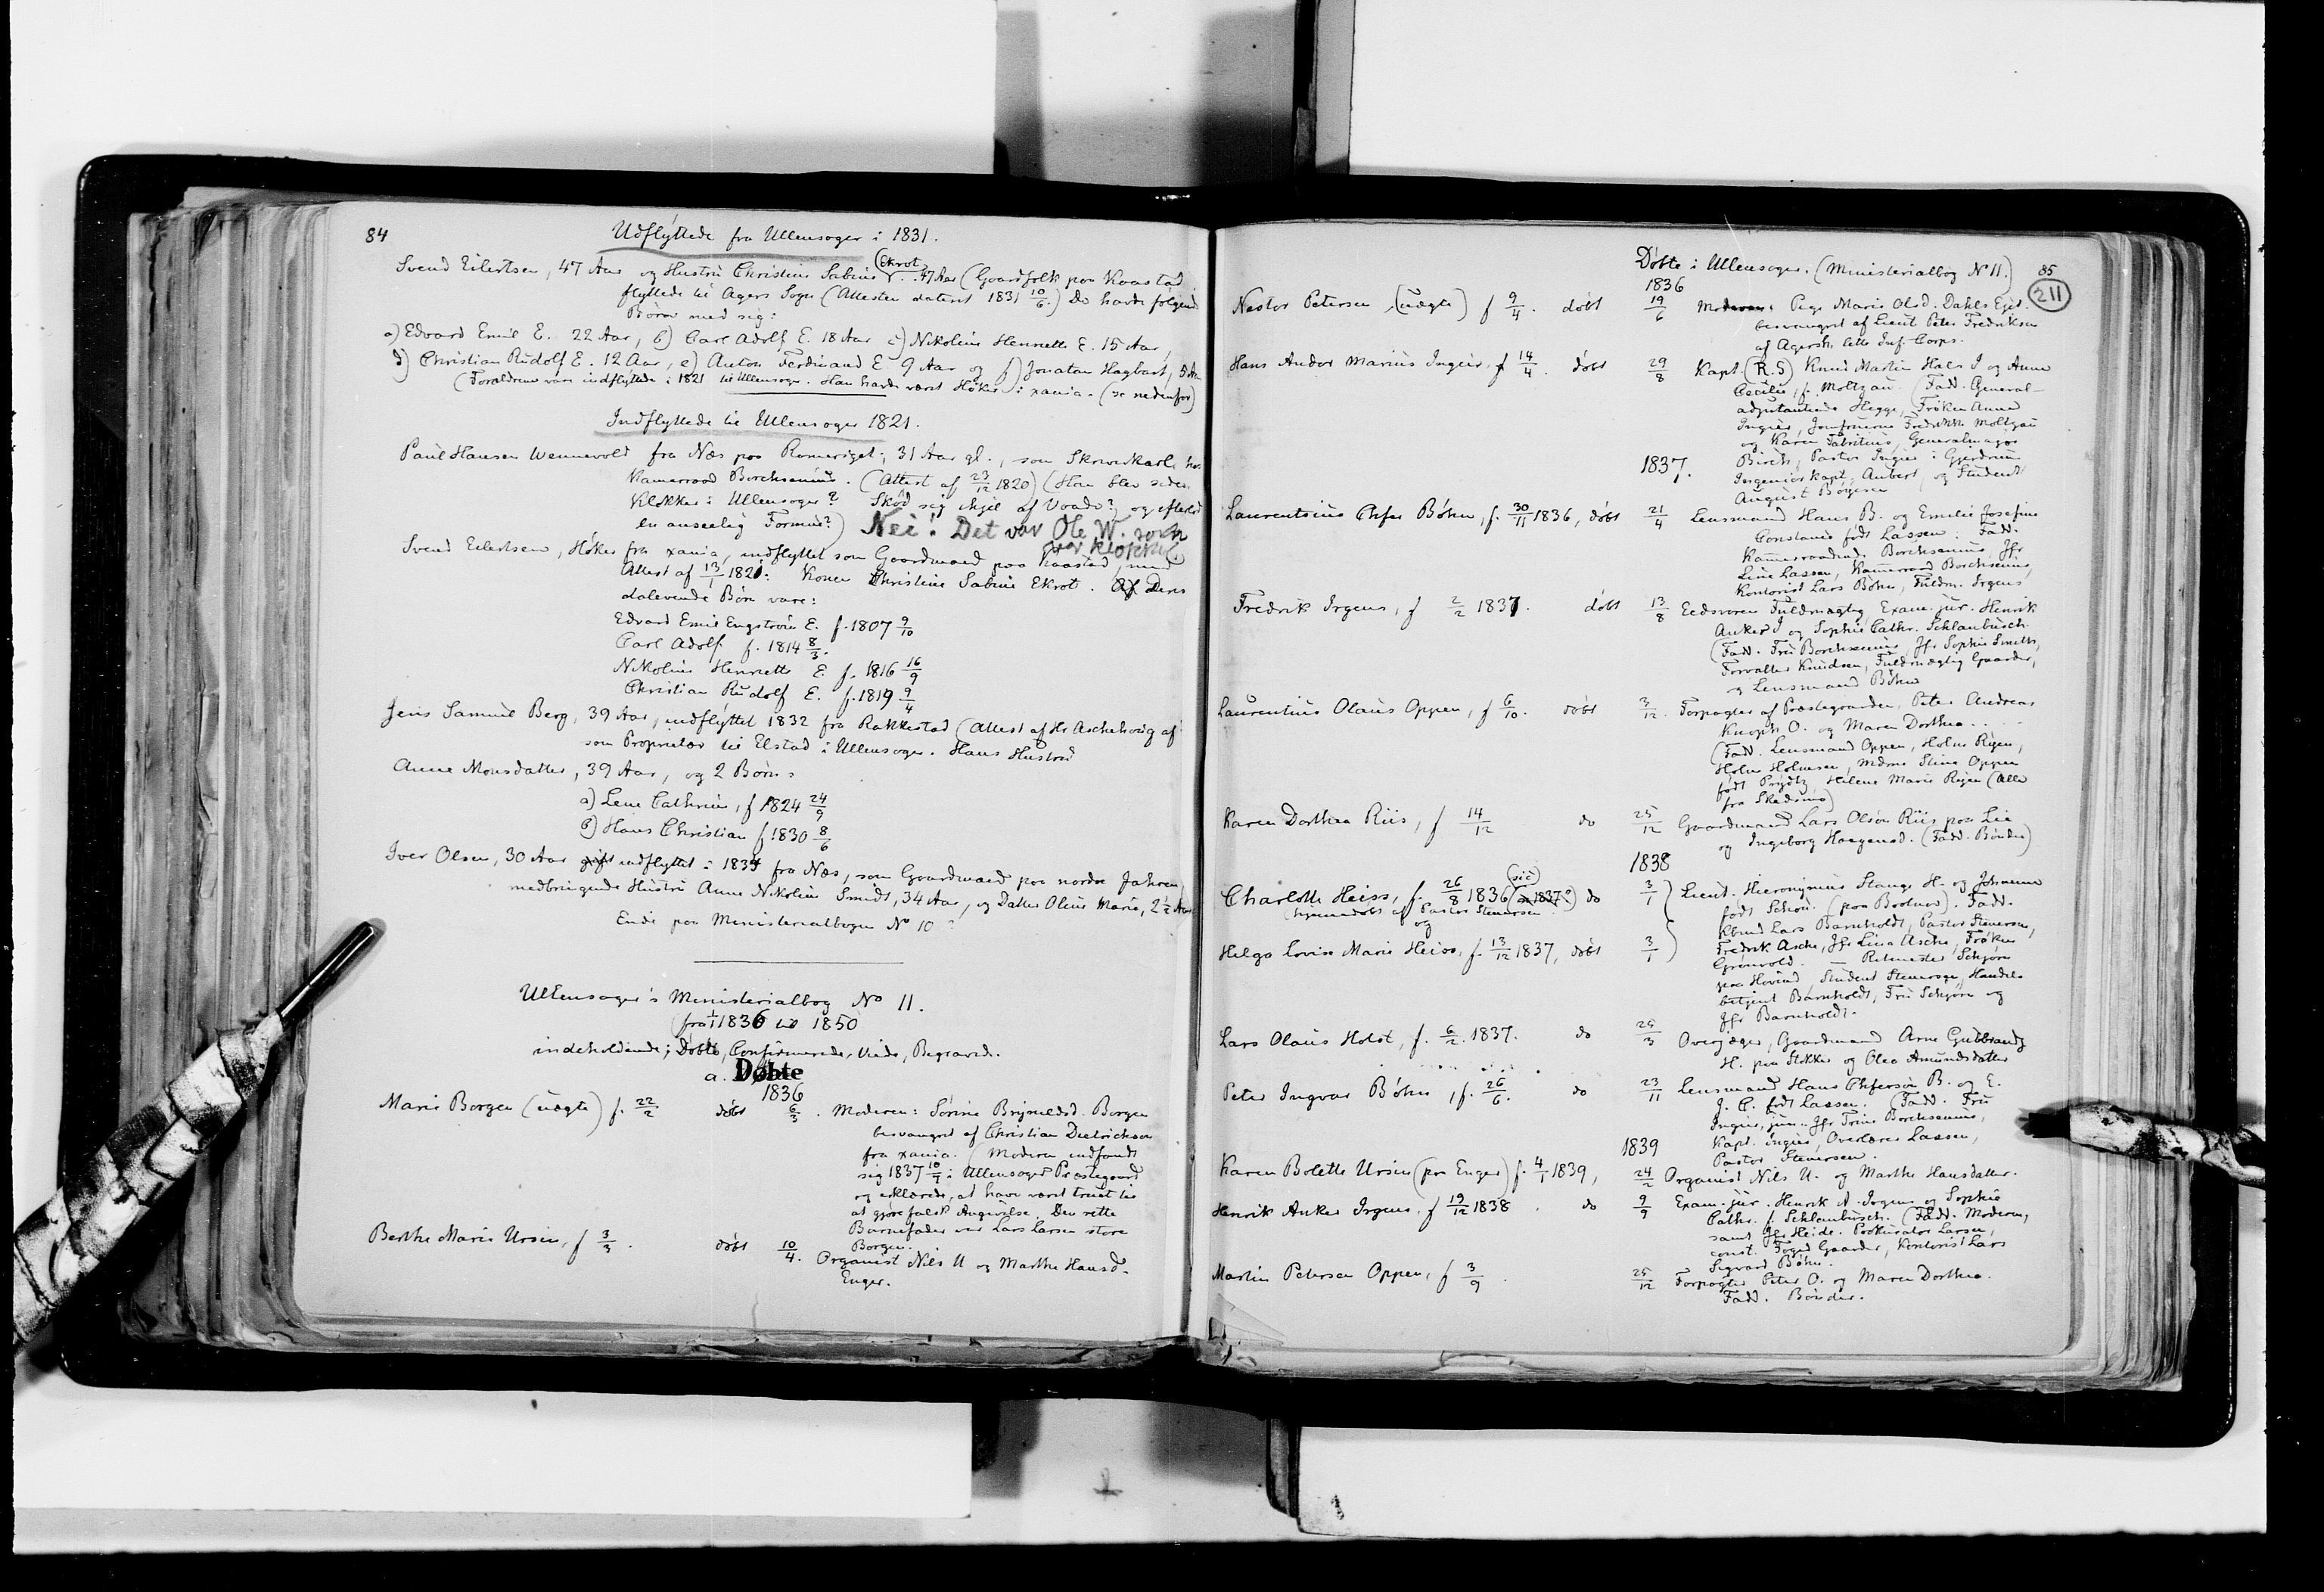 84
Udflyttede fra Ullensager i 1831.
Svend Eilertsen, 47 Aar og Hustru Christine Sabine (Ekrot) 47 Aar (Gaardfolk paa Kaastad
flyttede til Agers Sogn (Attesten dateret 1831 10/6.) De havde følgende
Børn med sig:
a) Edvard Emil E. 22 Aar, b) Carl Adolf E. 18 Aar c) Nikoline Henriette E. 15 Aar,
d) Christian Rudolf E. 12 Aar, e) Anton Ferdinand E 9 Aar og f) Jonatan Hagbart, 5 Aar
(Forældrene vare indflyttede i 1821 til Ullensager. Han havde været Høker i xania. (se nedenfor)
Indflyttede til Ullensager 1821.
Paul Hansen Wennevold fra Næs paa Romeriget, 31 Aar gl., som Skriverkarl hos
Kamerraad Borchsenius. (Attest af 23/12 1820) (Han blev siden
Klokker i Ullensager? Skød sig ihjel af Vaade? og efterlod
en anseelig Formue?) Nei! Det var Ole W. som
var klokker
Svend Eilertsen, Høker fra xania, indflyttet som Gaardmand paa Kaastad, med
Attest af 13/1 1821: Konen Christine Sabine Ekrot. Af Deres
dalevende Børn vare:
Edvard Emil Engstrøm E. f. 1807 9/10
Carl Adolf f. 1814 8/3.
Nikoline Henriette E. f. 1816 16/9
Christian Rudolf E. f. 1819 9/4
Jens Samuel Berg, 39 Aar, indflyttet 1832 fra Rakkestad (Attest af Hr Aschehoug af
som Proprietær til Elstad i Ullensager. Hans Hustru
Anne Monsdatter, 39 Aar, og 2 Børn:
a) Lene Cathrine, f 1824 24/9
b) Hans Christian f 1830 8/6
Iver Olsen, 30 Aar gift indflyttet i 1834 fra Næs, som Gaardmand paa nordre Jahren,
medbringende Hustru Anne Nikoline Smidt, 34 Aar, og Datter Oline Marie, 2½ Aar
Ende paa Ministerialbogen No 10
Ullensager's Ministerialbog No 11.
(fra 1/1 1836 til 1850
indeholdende; Døbte, Confirmerede, Viede, Begravede.
a. Døbte
1836
Marie Borgen (uægte) f. 22/2 døbt 6/3. Moderen: Sørine Brynildsd. Borgen
besvangret af Christian Dietrichson
fra xania. (Moderen indfandt
sig 1837 10/7 i Ullensager Præstegaard
og erklærede, at have været truet til
at gjøre falsk Angivelse. Den rette
Barnefader var Lars Larsen store
Borgen.
Berthe Marie Ursin, f 3/3. døbt 10/4. Organist Nils U og Marthe Hansd.
Enger.
Døbte i Ullensager. (Ministerialbog No 11.)
85
211
1836
Nestor Petersen, (uægte) f 9/4. døbt 19/6 Moderen: Pige Marie Olsd. Dahls Ejd.
besvangret af Lieut Peter Fredriksen
af Agersh. lette Inf-Corps.
Hans Andor Marius Ingier, f 14/4. døbt 29/8 Kapt. (R.S) Knud Martin Hals I og Anne
Cecilie, f. Moltzau. (Fadd. General-
adjutantinde Hegge, Frøken Anna
Ingier, Jomfruerne Fredrikke Moltzau
og Karen Fabritius, Generalmajor
Birch, Pastor Ingier i Gjerdrum
Ingeniørkapt. Aubert, og Student
August Børgesen
1837.
Laurentsius Chfer Bøhn, f. 30/11 1836, døbt 21/4 Lensmand Hans B. og Emilie Josefine
Constance født Lassen: Fadd.
Kammerraadinde Borchsenius, Jfr
Line Lassen, Kammerraad Borchsenius,
Kontorist Lars Bøhn, Fuldm. Irgens
Fredrik Irgens, f 2/2 1837. døbt 13/8 Eedsvoren Fuldmægtig Exam. jur. Henrik
Anker I og Sophie Cathr. Schlanbusch.
(Fadd. Fru Borchsenius, Jfr Sophie Smith,
Forvalter Knudsen, Fuldmægtig Gaarder,
og Lensmand Bøhn
Laurentius Olaus Oppen, f 6/10. døbt 3/12. Forpagter af Præstegaarden, Peter Andreas
Knoph O. og Maren Dorthea..
(Fadd. Lensmand Oppen, Holm Rigen,
Holm Holmsen, Mdme Stine Oppen
født Prydtz, Helene Marie Rigen (Alle
fra Skedsmo)
Karen Dorthea Riis, f 14/12 do 25/12 Gaardmand Lars Olsøn Riis paa Lie
og Ingeborg Haagensd. (Fadd. Bønder)
1838
Charlotte Heiss, f. 26/8 1836 (sic) do 3/1 Lieut. Hieronymus Stange H. og Johanne
(hjemmedøbt af Pastor Stenersen. født Schou. (paa Bodnar). Fadd.
og
Kbmd Lars Barnholdt, Pastor Stenersen,
Helga Lovise Marie Heiss, f. 13/12 1837, døbt 3/1 Fredrik Asche, Jfr Lina Asche, Frøken
Grønvold. — Ritmester Schjørn
paa Hovind, Student Stenersen, Handels
betjent Barnholdt, Fru Schjørn og
Jfr Barnholdt.
Lars Olaus Holst, f. 6/2. 1837. do 25/3 Overjæger, Gaardmand Arne Gulbrandz
H. paa Stokker og Olea Amundsdatter
Peter Ingvar Bøhn, f. 26/6. do 23/11 Lensmand Hans Chfersøn B. og E.
J. C. født Lassen. (Fadd. Fru
Ingier, jun. Jfr Trine Borchsenius,
Kapt. Ingier, Overlærer Lassen,
Pastor Stenersen.
1839
Karen Bolette Ursin (paa Enger) f. 4/1 1839, 24/2 Organist Nils U. og Marthe Hansdatter.
Henrik Anker Irgens. f 19/12 1838. do 9/9 Exam. jur. Henrik A. Irgens og Sophie
Cathr. f. Schlanbusch. (Fadd. Moderen,
samt Jfr Heide. Prokurator Larsen,
const. Foged Gaarder, Kontorist Lars
Sigvard Bøhn.
Martin Petersen Oppen, f 3/9. 25/12 Forpagter Peter O. og Maren Dorthea.
Fadd. Bønder.